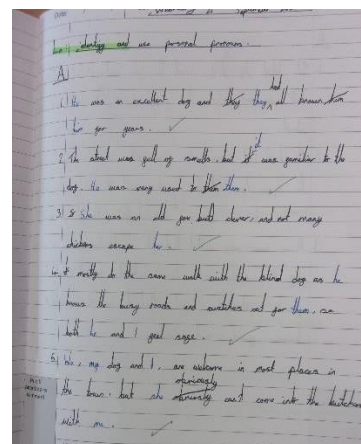 L.I identify and use personal pronouns.
A
1. He was an excellent dog and they had all known
him for years.
2. The street was full of smells, but it was familiar to the
dog. He was very used to them.
3. She was an old fox but clever, and not many
chickens escape her.
mostly do the same walk with the blind dog as he
knows the busy roads and watches out for them, so
both he and I feel safe.
5. We, my dog and I, are welcome in most places in
the town, but she obviously can't come into the kitchen
with me.